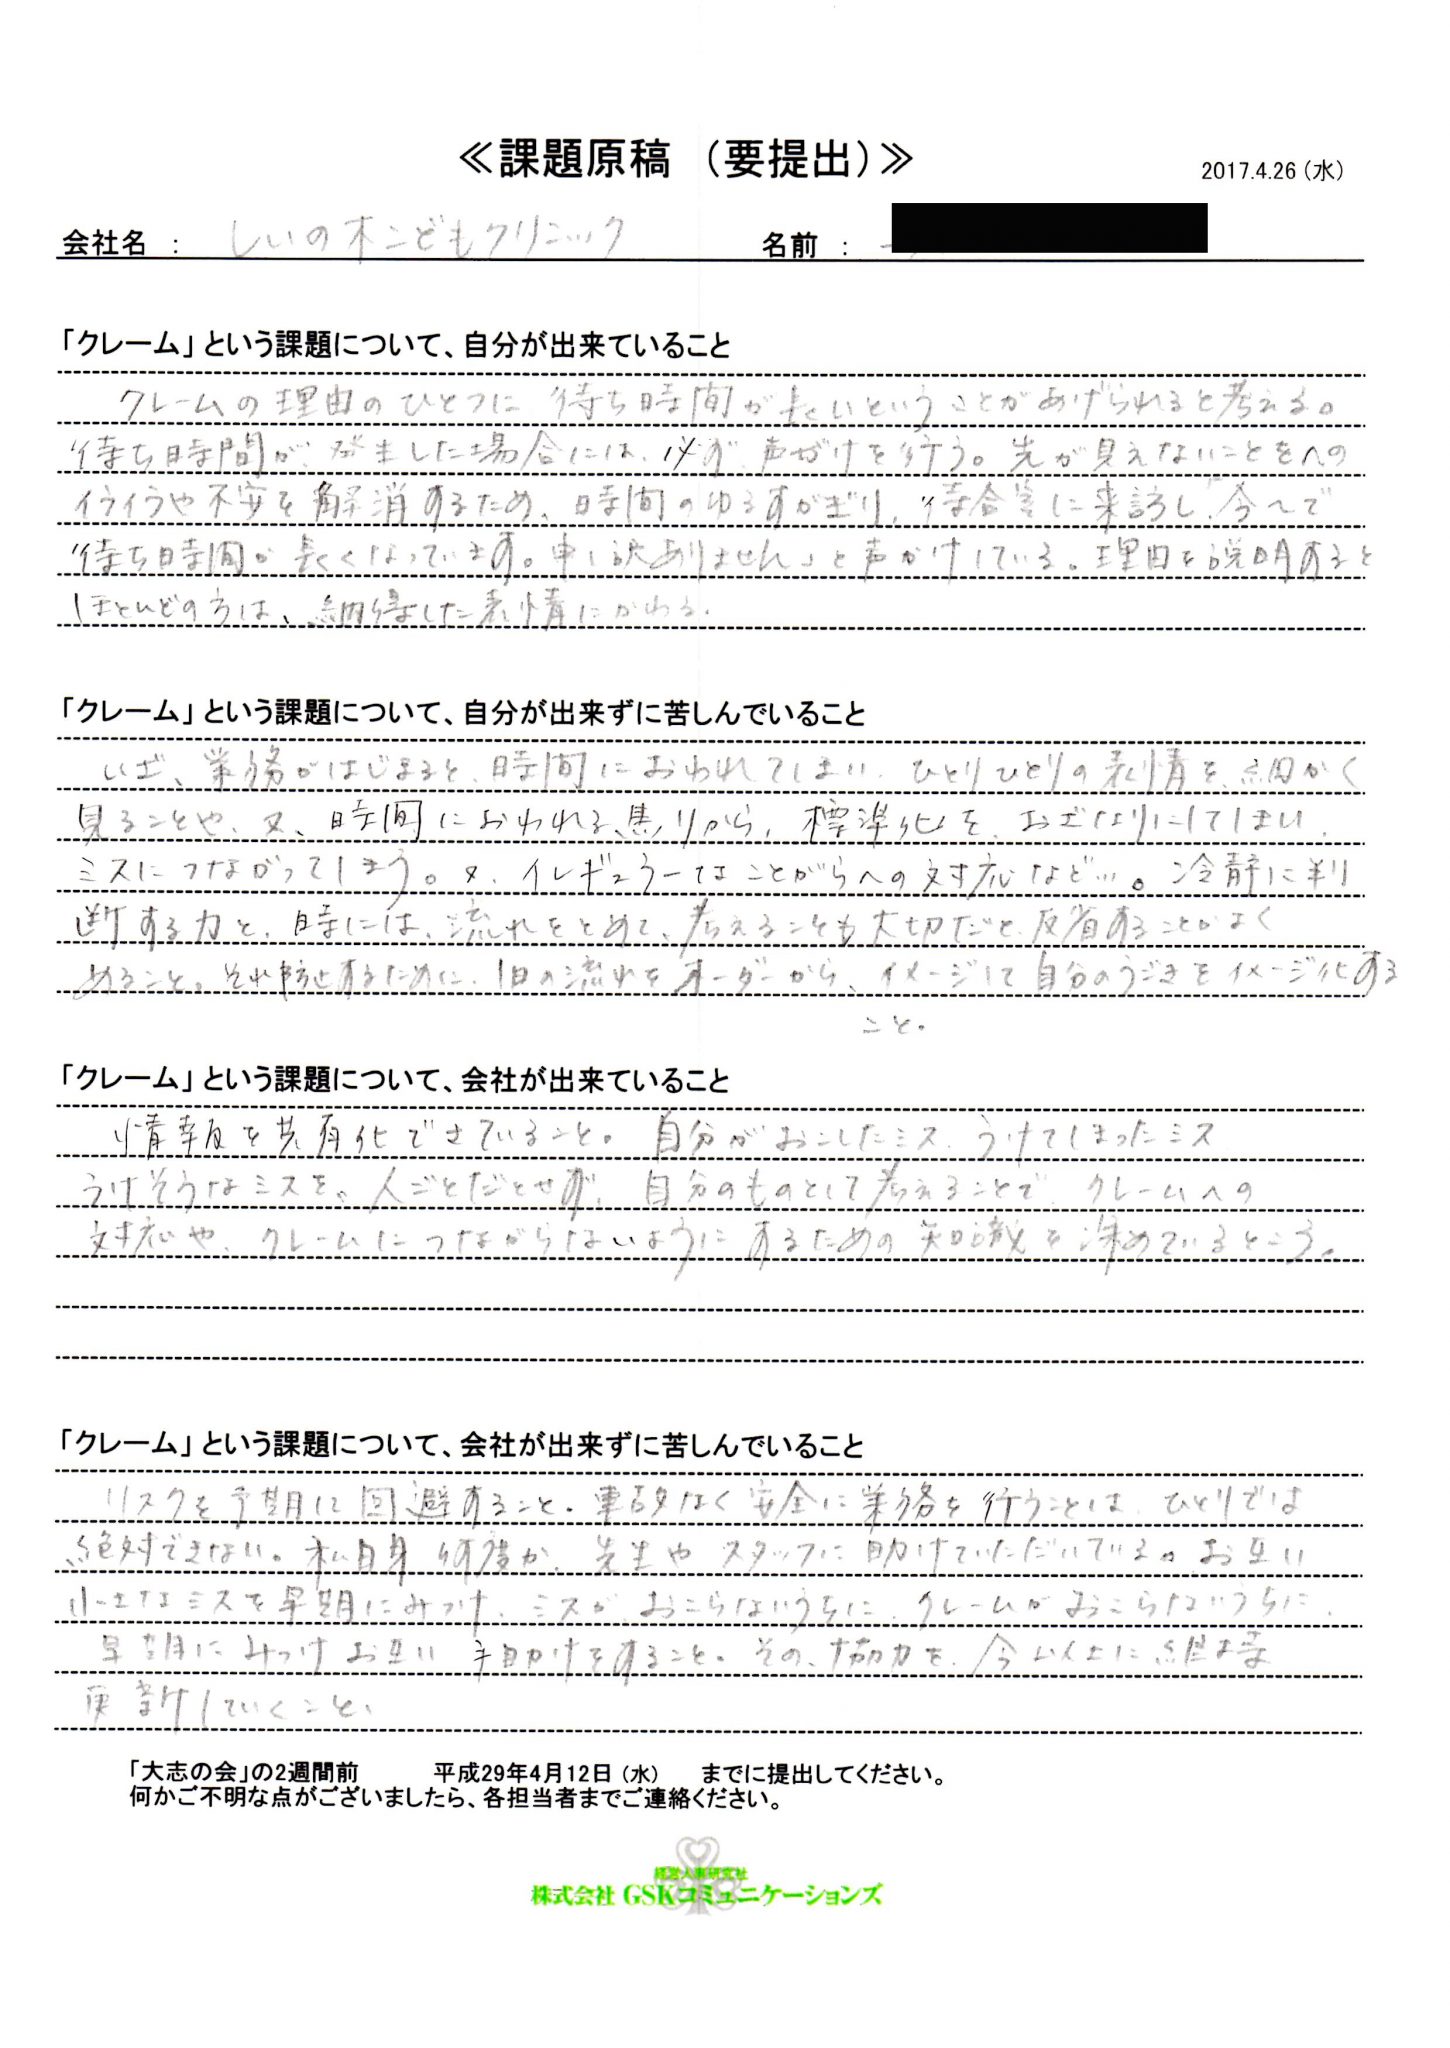 ≪課題原稿 （要提出）≫
2017.4.26（水）
会社名 ： しいの木こどもクリニック 名前 ：
「クレーム」という課題について、自分が出来ていること
クレームの理由のひとつに 待ち時間が長いということがあげられると考える。
待ち時間が、発生した場合には、必ず、声がけを行う。先が見えないことをへの
イライラや不安を解消するため、時間のゆるすかぎり、待合室に来訪し、「今
待ち時間が長くなっています。申し訳ありません」と声かけしている。理由を説明すると
ほとんどの方は、納得した表情にかわる。
「クレーム」という課題について、自分が出来ずに苦しんでいること
いざ、業務がはじまると、時間におわれてしまい、ひとりひとりの表情を、細かく
見ることや、又、時間におわれる焦りから、標準化を、おざなりにしてしまい、
ミスにつながってしまう。又、イレギュラーなことがらへの対応など…。冷静に判
断する力と、時には、流れをとめて、考えることも大切だと、反省することがよく
あること。それ防止するために、1日の流れをオーダーから、イメージして自分のうごきをイメージ化する
こと。
「クレーム」という課題について、会社が出来ていること
情報を共有化できていること。自分がおこしたミス、うけてしまったミス
うけそうなミスを、人ごとだとせず、自分のものとして考えることで、クレームへの
対応や、クレームにつながらないようにするための知識を深めているところ。
「クレーム」という課題について、会社が出来ずに苦しんでいること
リスクを予期に回避すること。事故なく安全に業務を行うことは、ひとりでは
絶対できない。私自身 何度か、先生や スタッフに助けていただいている。お互い
小さなミスを早期にみつけ、ミスが、おこらないうちに、クレームがおこらないうちに、
早期にみつけ お互い 手助けをすること。その、協力を、今以上に維持
更新していくこと、
「大志の会」の2週間前 平成29年4月12日（水） までに提出してください。
何かご不明な点がございましたら、各担当者までご連絡ください。
経営人事研究社
株式会社 GSKコミュニケーションズ